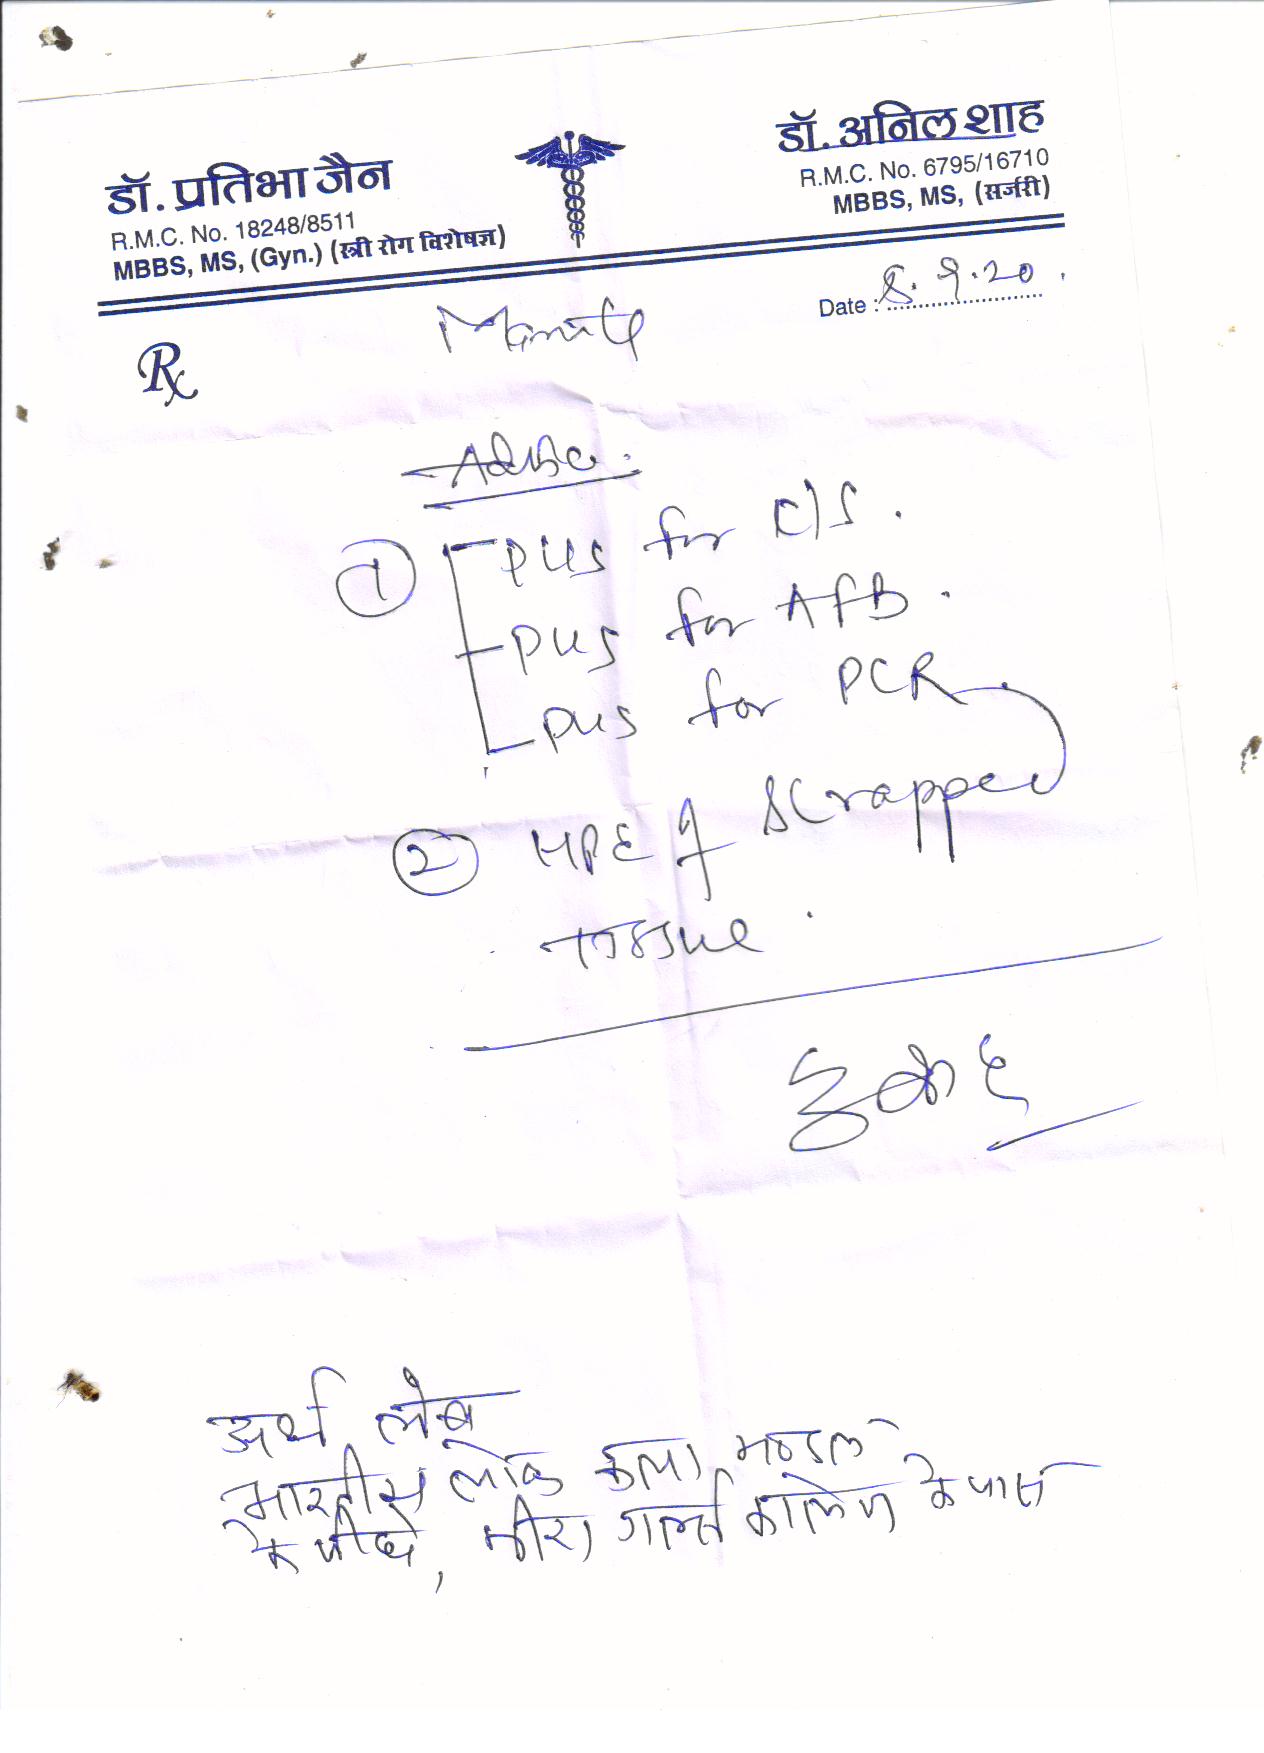 डॉ. प्रतिभा जैन
R.M.C. No. 18248/8511
MBBS, MS, (Gyn.) (स्त्री रोग विशेषज्ञ)
डॉ. अनिल शाह
R.M.C. No. 6795/16710
MBBS, MS, (सर्जरी)
Date : 8.9.20
Rx
Advice.
① PUS for C/S.
PUS for AFB.
PUS for PCR.
② HPE of Scrapped
Tissue.
अर्थ लेब
भारतीय लोक कला मण्डल
के पीछे, मीरा गर्ल्स कालेज के पास